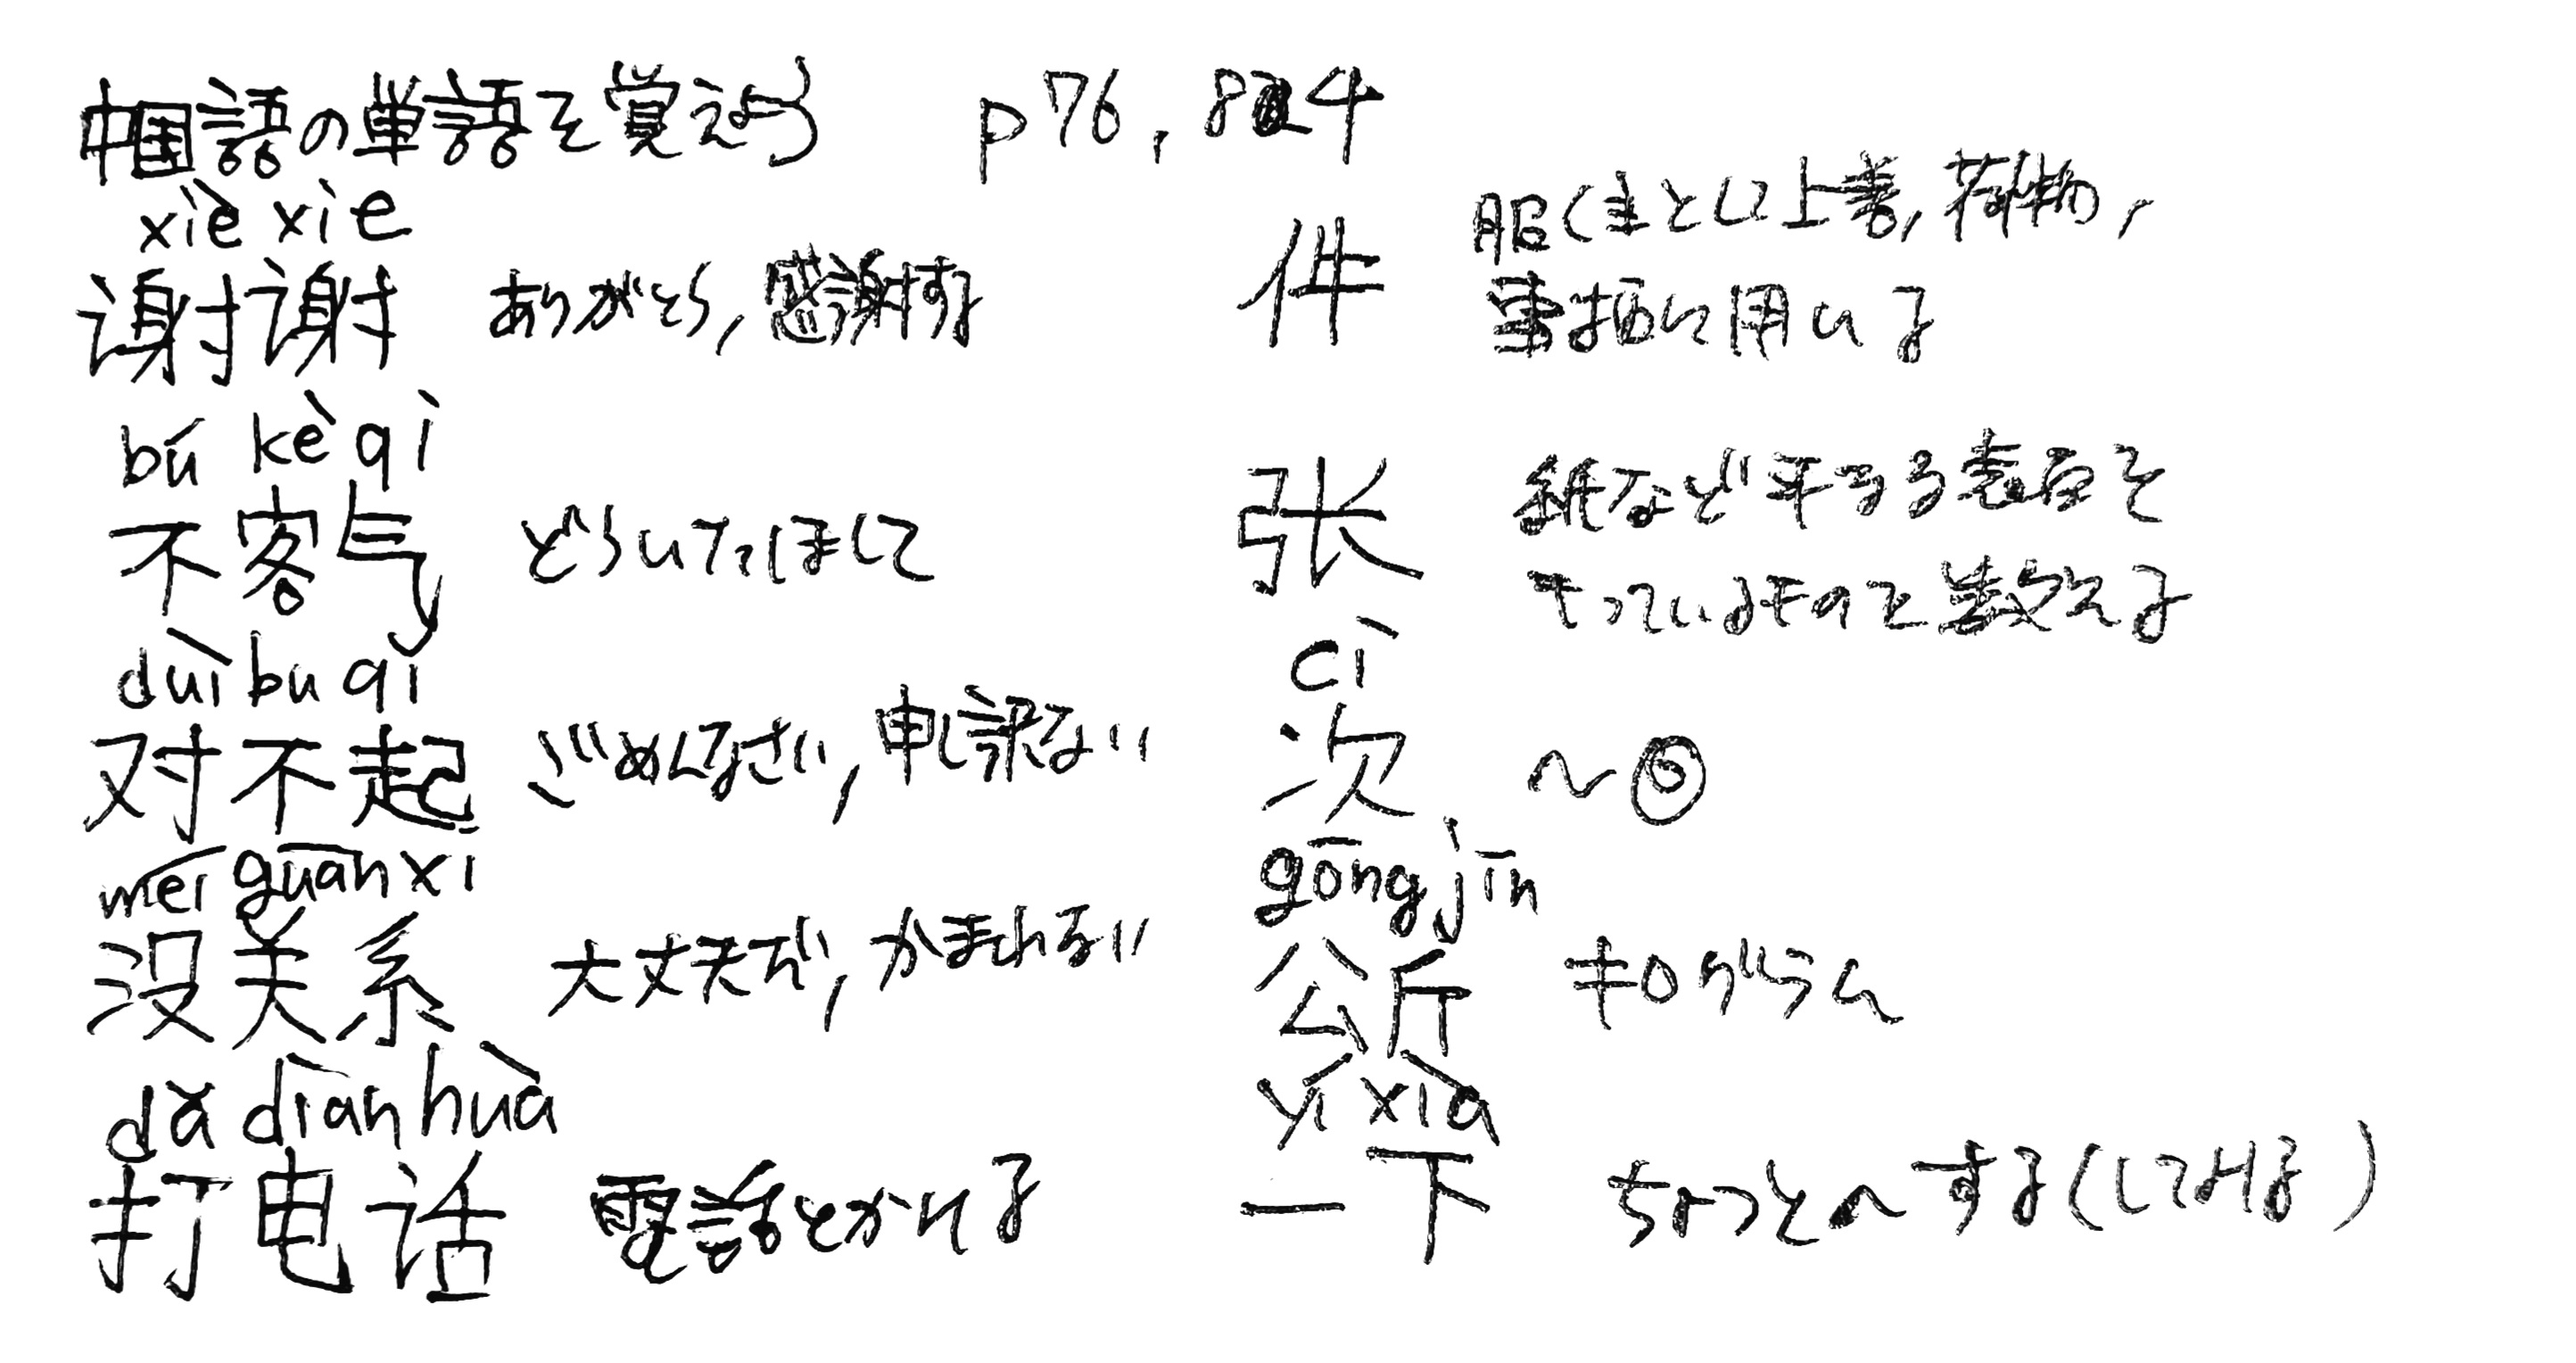 中国語の単語を覚えよう p76, 84
xiè xie
谢谢 ありがとう, 感謝する
bú kèqi
不客气 どういたしまして
duìbuqǐ
对不起 ごめんなさい, 申し訳ない
méi guānxi
没关系 大丈夫だ, かまわない
dǎ diànhuà
打电话 電話をかける
件 服(主として上着, 荷物,
事柄に用いる
张 紙など平らな表面を
もっているものを数える
cì
次 ~回
gōngjīn
公斤 キログラム
yíxià
一下 ちょっと~する(してみる)